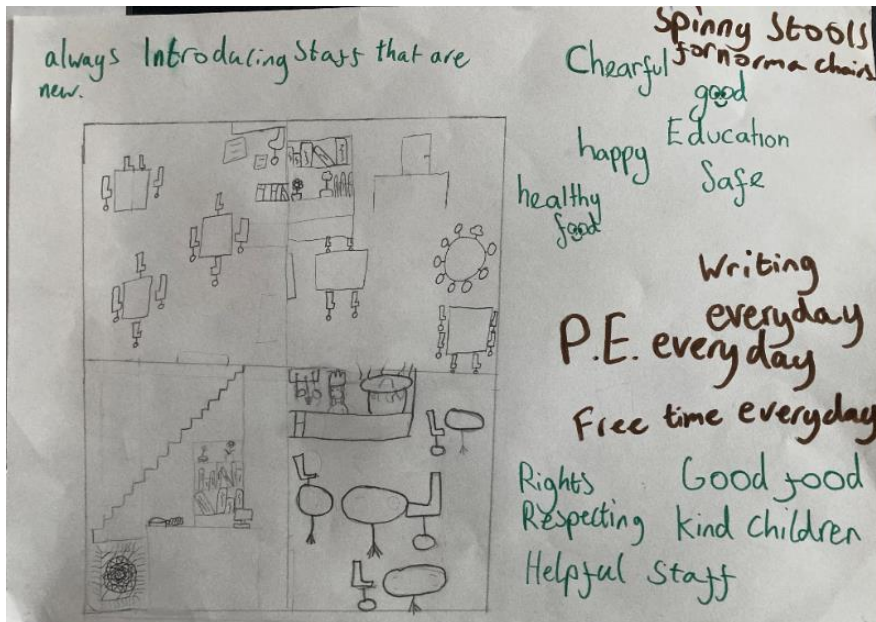 always Introducing Staff that are
new.
Spinny Stools
for norma chairs
Chearful
good
Education
happy
Safe
healthy
food
Writing
everyday
P.E. everyday
Free time everyday
Rights
Respecting
Good food
Kind Children
Helpful Staff